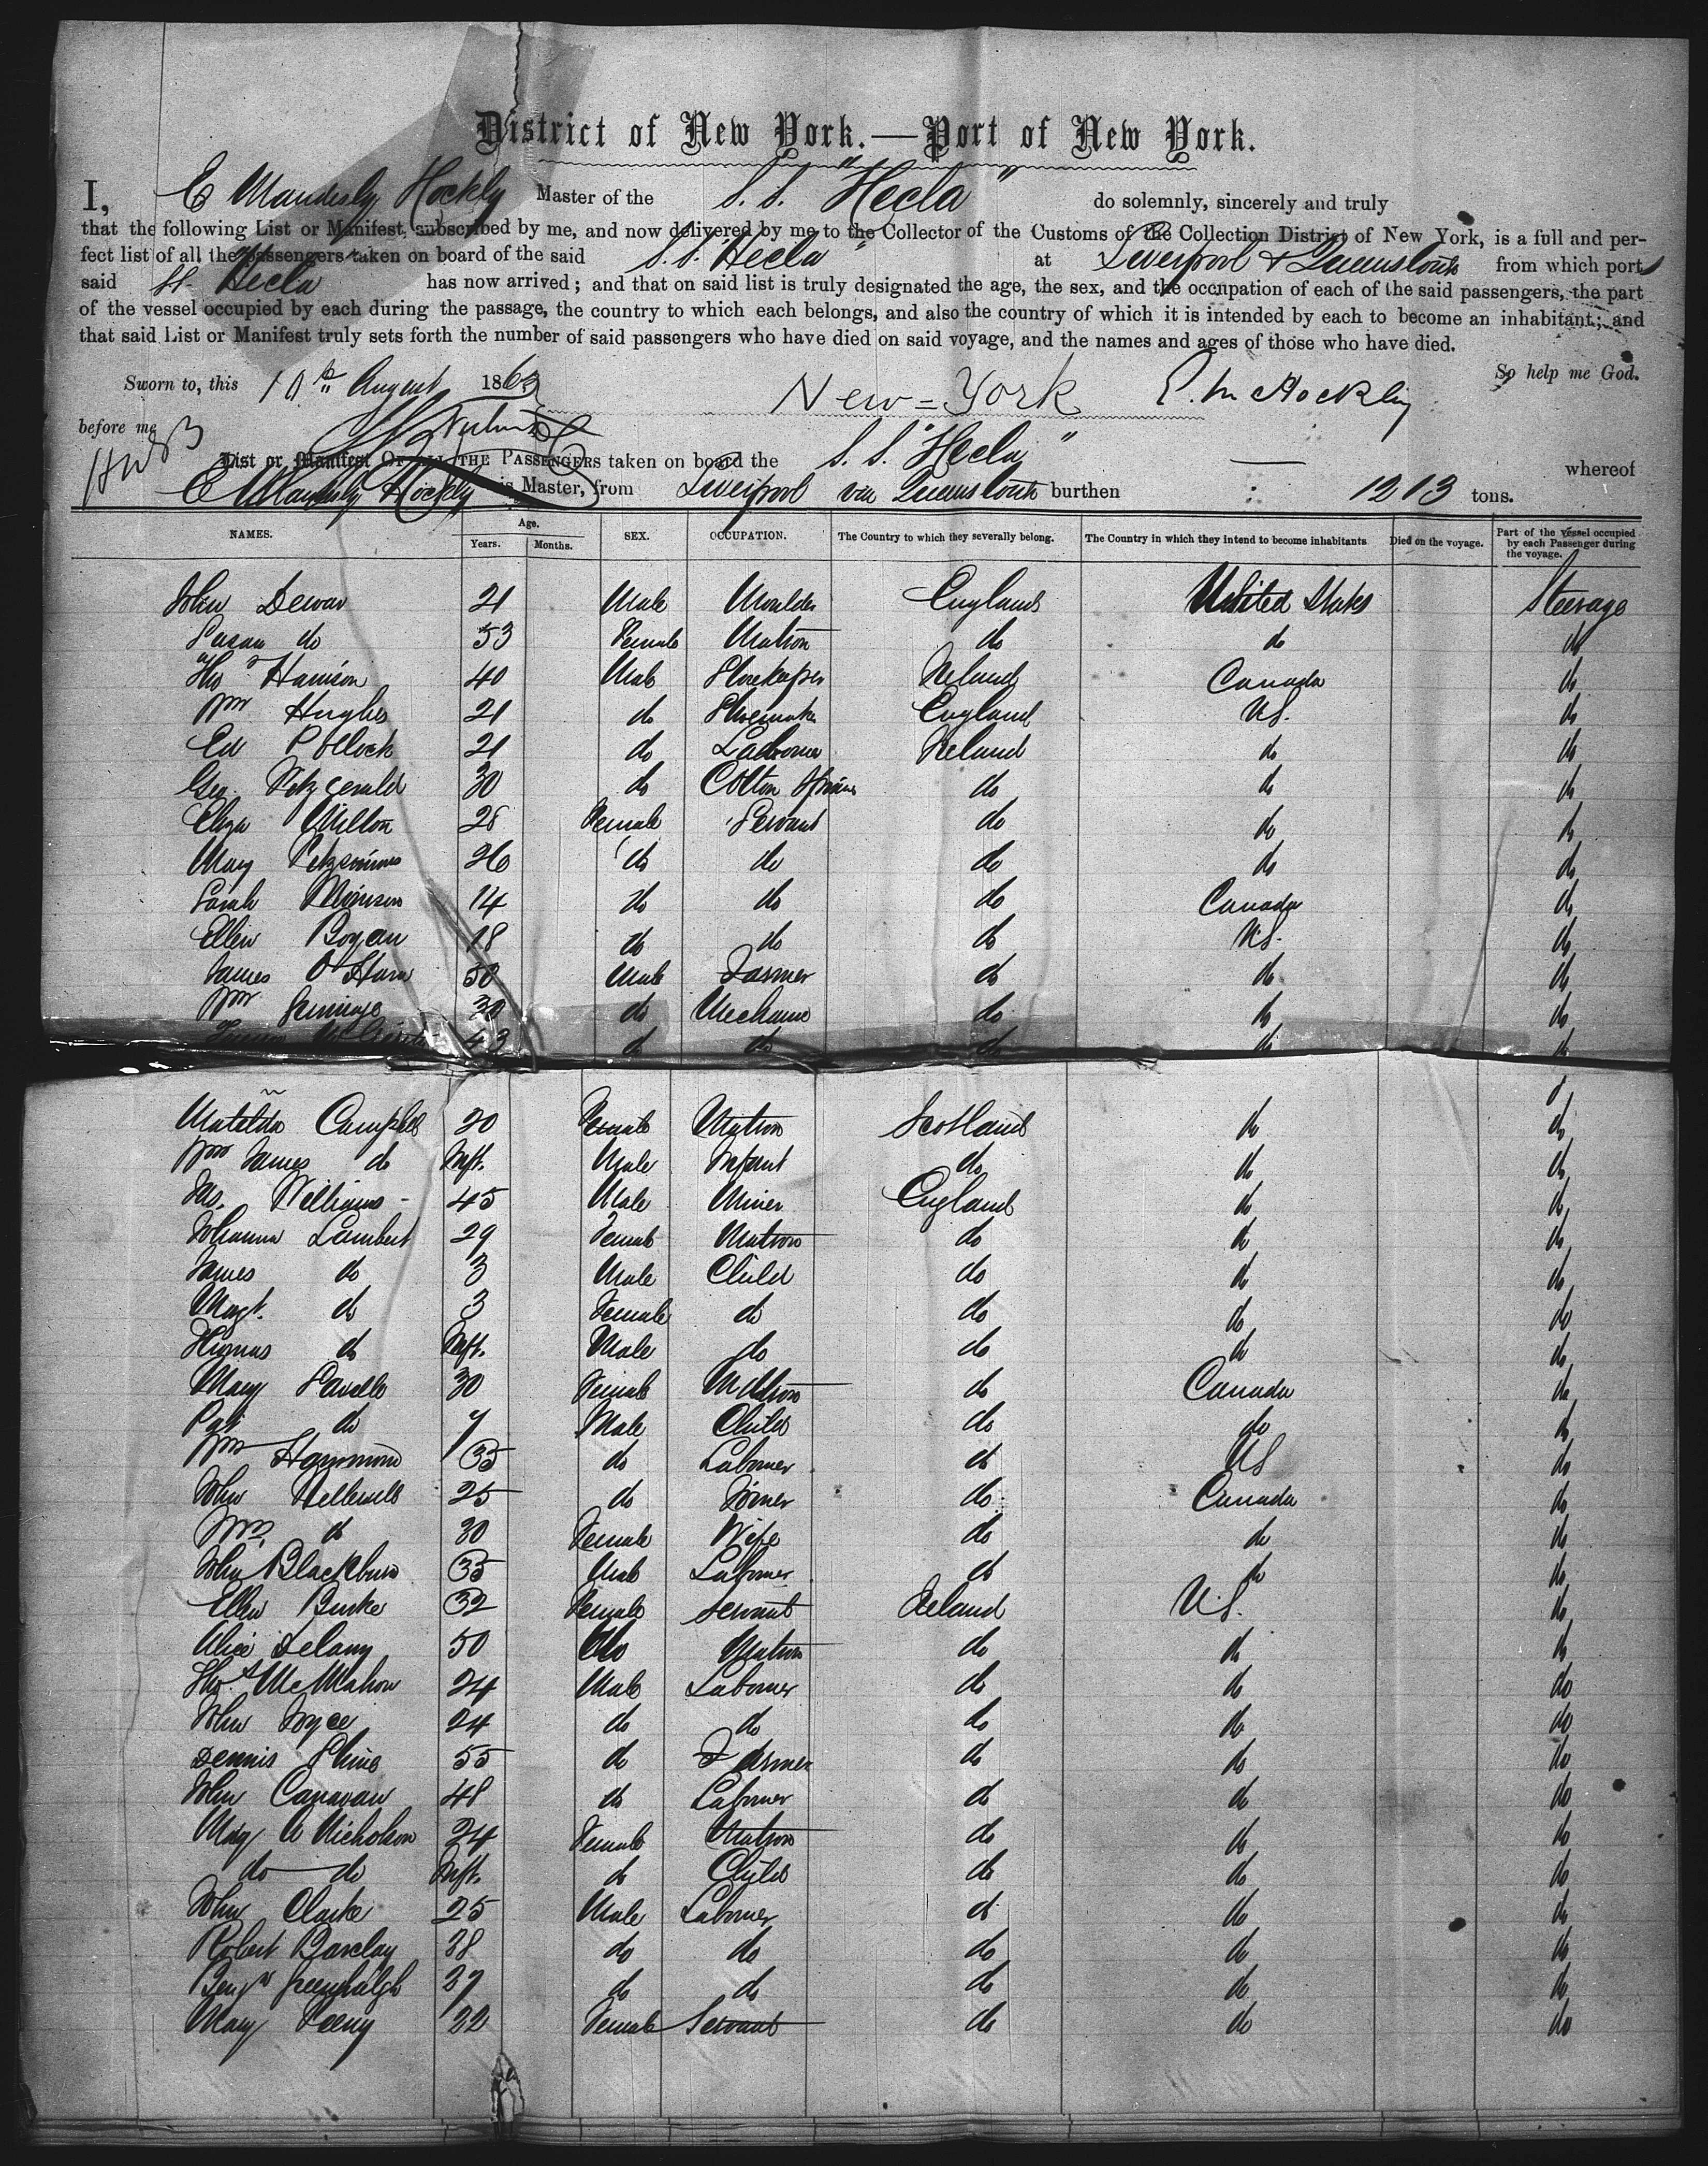 District of New York.—Port of New York.
I, E Maudesly Hockly Master of the S. S. "Hecla" do solemnly, sincerely and truly
that the following List or Manifest, subscribed by me, and now delivered by me to the Collector of the Customs of the Collection District of New York, is a full and per-
fect list of all the passengers taken on board of the said S. S. "Hecla" at Liverpool & Queenstown from which ports
said St. Hecla has now arrived; and that on said list is truly designated the age, the sex, and the occupation of each of the said passengers, the part
of the vessel occupied by each during the passage, the country to which each belongs, and also the country of which it is intended by each to become an inhabitant; and
that said List or Manifest truly sets forth the number of said passengers who have died on said voyage, and the names and ages of those who have died.
So help me God.
Sworn to, this 10th August 1863 New=York E. M Hockly
before me
List or Manifest OF ALL THE PASSENGERS taken on board the S. S. "Hecla" whereof
E Maudesly Hockly is Master, from Liverpool via Queenstown burthen 1213 tons.
NAMES. Age. Years. Months. SEX. OCCUPATION. The Country to which they severally belong. The Country in which they intend to become inhabitants Died on the voyage. Part of the vessel occupied by each Passenger during the voyage.
John Dewar 21 Male Moulder England United States Steerage
Susan do 53 Female Matron do do do
Thos Harrison 40 Male Storekeeper Ireland Canada do
Wm Hughes 21 do Shoemaker England U.S. do
Ed Pollock 21 do Laborer Ireland do do
Geo. Fitzgerald 30 do Cotton Spinner do do do
Eliza Milton 28 Female Servant do do do
Mary Fitzsimins 26 do do do do do
Sarah Morrison 14 do do do Canada do
Ellen Bogan 18 do do do U.S. do
James O'Hara 50 Male Farmer do do do
Wm Jennings 30 do Mechanic do do do
43 do do do do do
Matilda Campbell 20 Female Matron Scotland do do
Wm James do Inft. Male Infant do do do
Jas. Williams 45 Male Miner England do do
Johanna Lambert 29 Female Matron do do do
James do 3 Male Child do do do
Magt. do 3 Female do do do do
Thomas do Inft. Male do do do do
Mary Savelle 30 Female Matron do Canada do
Pat do 7 Male Child do do do
Wm Hammond 35 do Laborer do US do
John Hellewell 25 do Joiner do Canada do
Mrs. do 30 Female Wife do do do
John Blackburn 35 Male Laborer do do do
Ellen Burke 32 Female Servant Ireland U.S. do
Alice Delany 50 do Matron do do do
Thos McMahon 24 Male Laborer do do do
John Joyce 24 do do do do do
Dennis Shine 55 do Farmer do do do
John Canavan 48 do Laborer do do do
Mary A Nicholson 24 Female Matron do do do
do do Inft. do Child do do do
John Clarke 25 Male Laborer do do do
Robert Barclay 38 do do do do do
Benjn Greenhalgh 37 do do do do do
Mary Feeny 22 Female Servant do do do